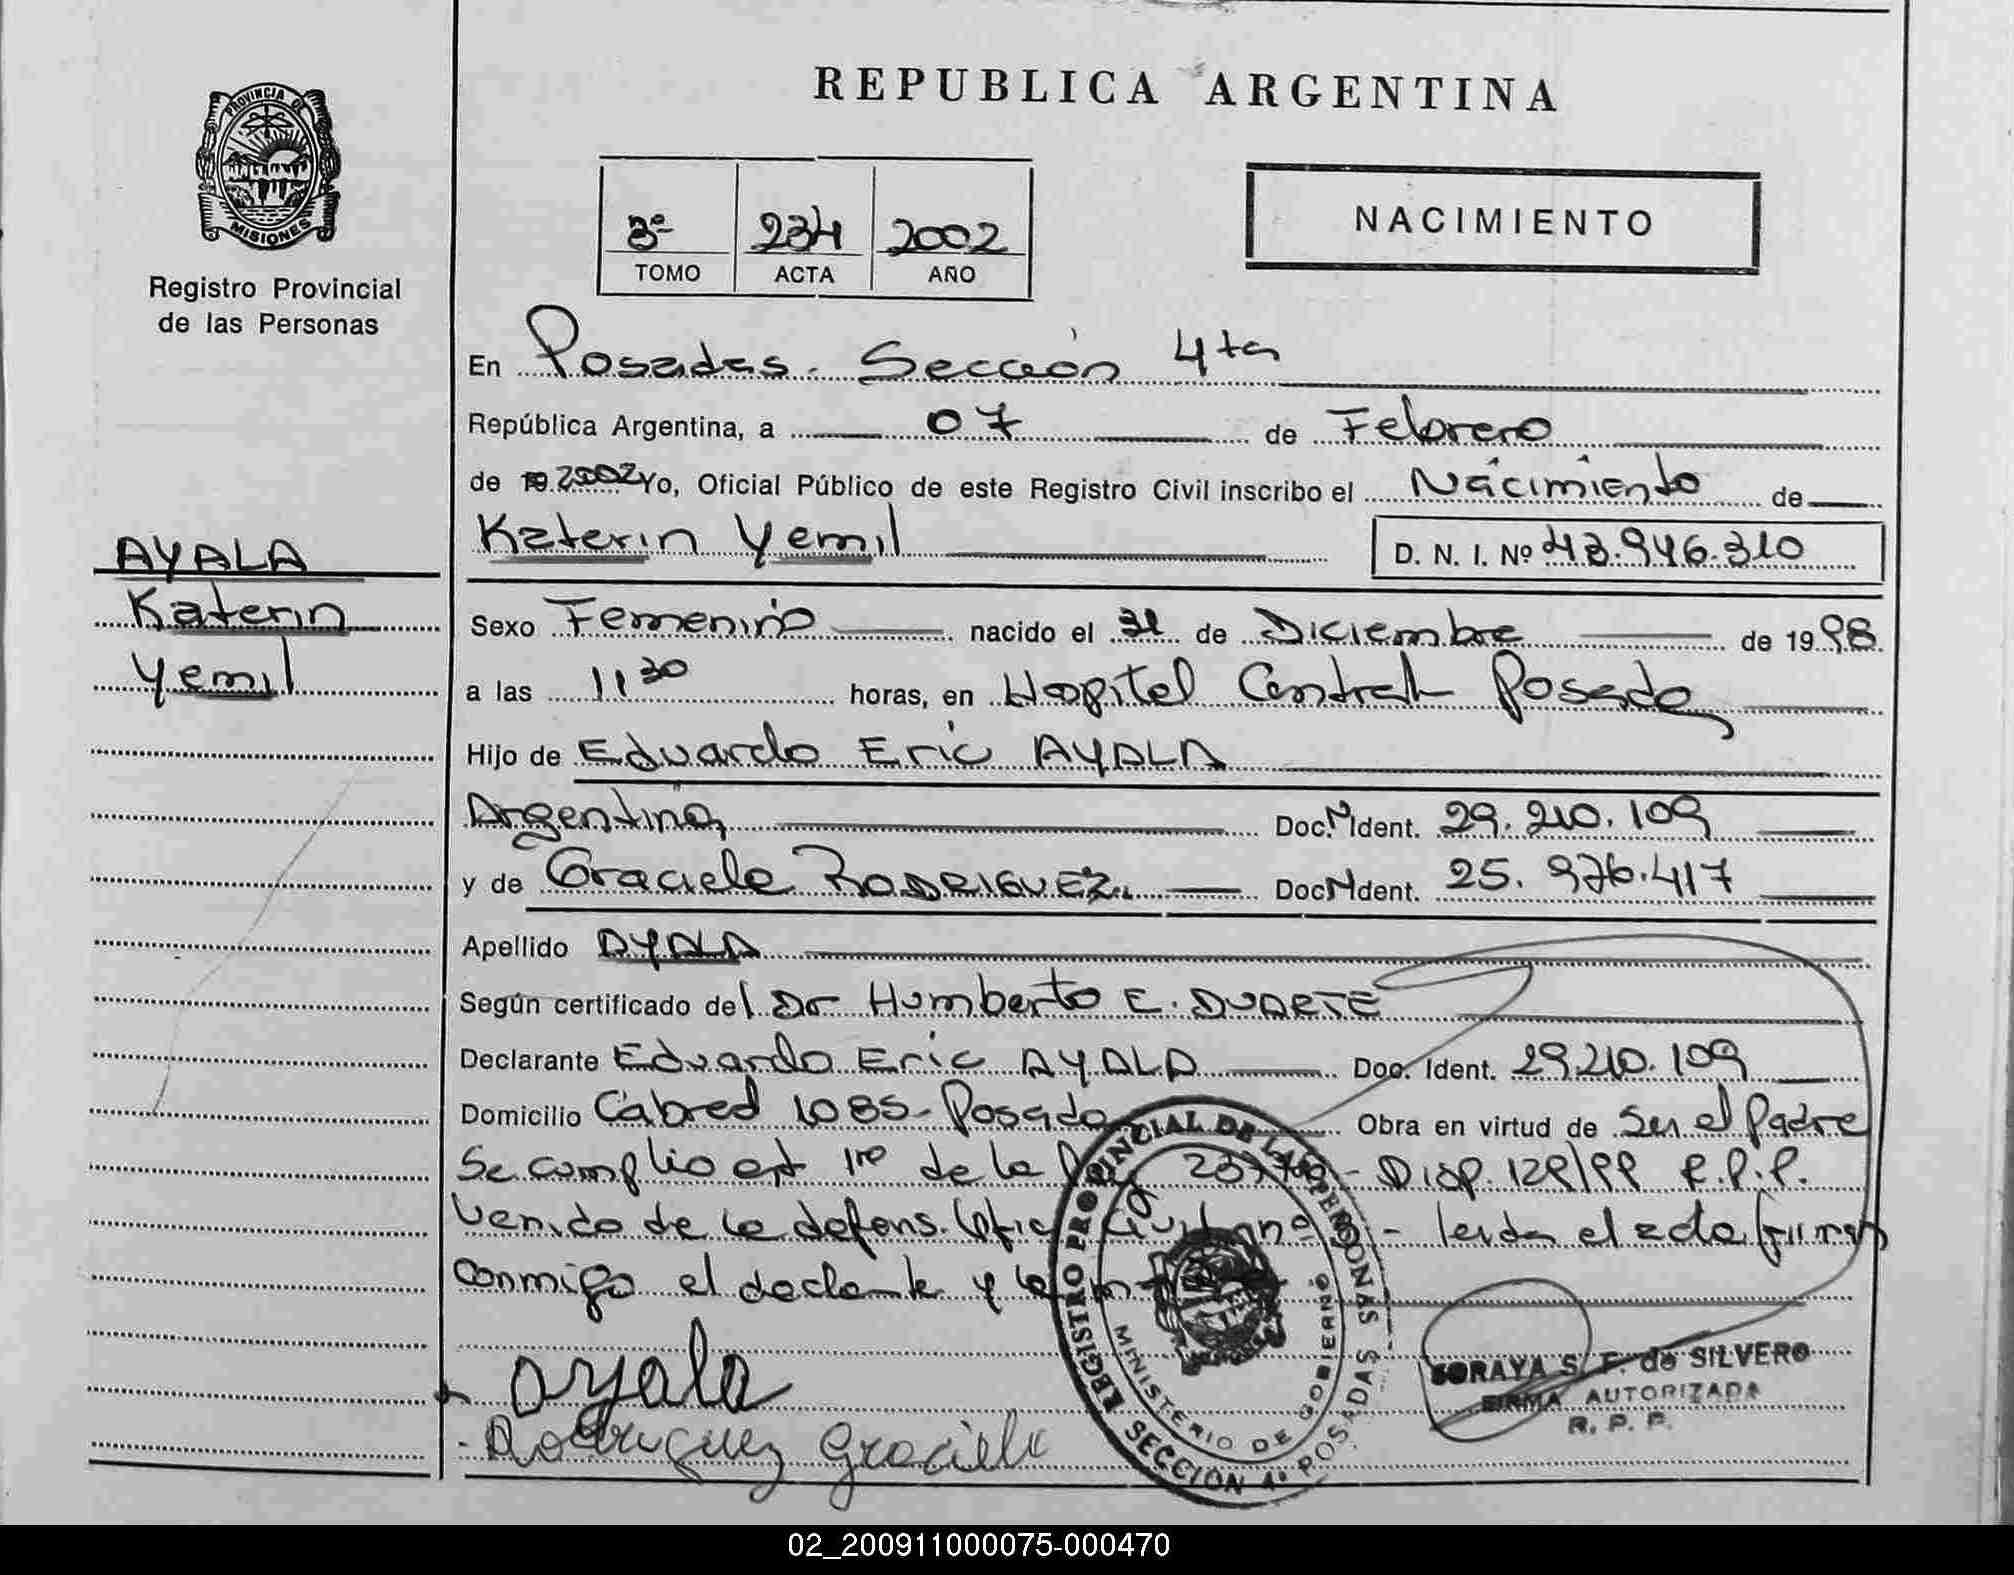 PROVINCIA DE
MISIONES
Registro Provincial
de las Personas
AYALA
Katerin
Yemil
REPUBLICA ARGENTINA
3º 234 2002
TOMO ACTA AÑO
NACIMIENTO
En Posadas. Sección 4ta
República Argentina, a 07 de Febrero
de 19 2002 Yo, Oficial Público de este Registro Civil inscribo el Nacimiento de
Katerin Yemil D. N. I. Nº 43.946.310
Sexo Femenino nacido el 31 de Diciembre de 1998
a las 11 30 horas, en Hospital Central Posadas
Hijo de Eduardo Eric AYALA
Argentina, Doc. N Ident. 29.210.109
y de Graciela RODRIGUEZ. Doc N Ident. 25.976.417
Apellido AYALA
Según certificado del Dr Humberto E. DUARTE
Declarante Eduardo Eric AYALA Doc. Ident. 29.210.109
Domicilio Cabred 1085 - Posadas Obra en virtud de Ser el Padre
Se cumplio art 1ro de la - Disp. 129/99 R.P.P.
venido de la defens. - leida el acta firman
conmigo el declante y la
Ayala
Rodriguez Graciela
REGISTRO PROVINCIAL DE LAS PERSONAS
MINISTERIO DE GOBIERNO
SECCION 4ª POSADAS
SORAYA S. F. de SILVERO
FIRMA AUTORIZADA
R. P. P.
02_200911000075-000470